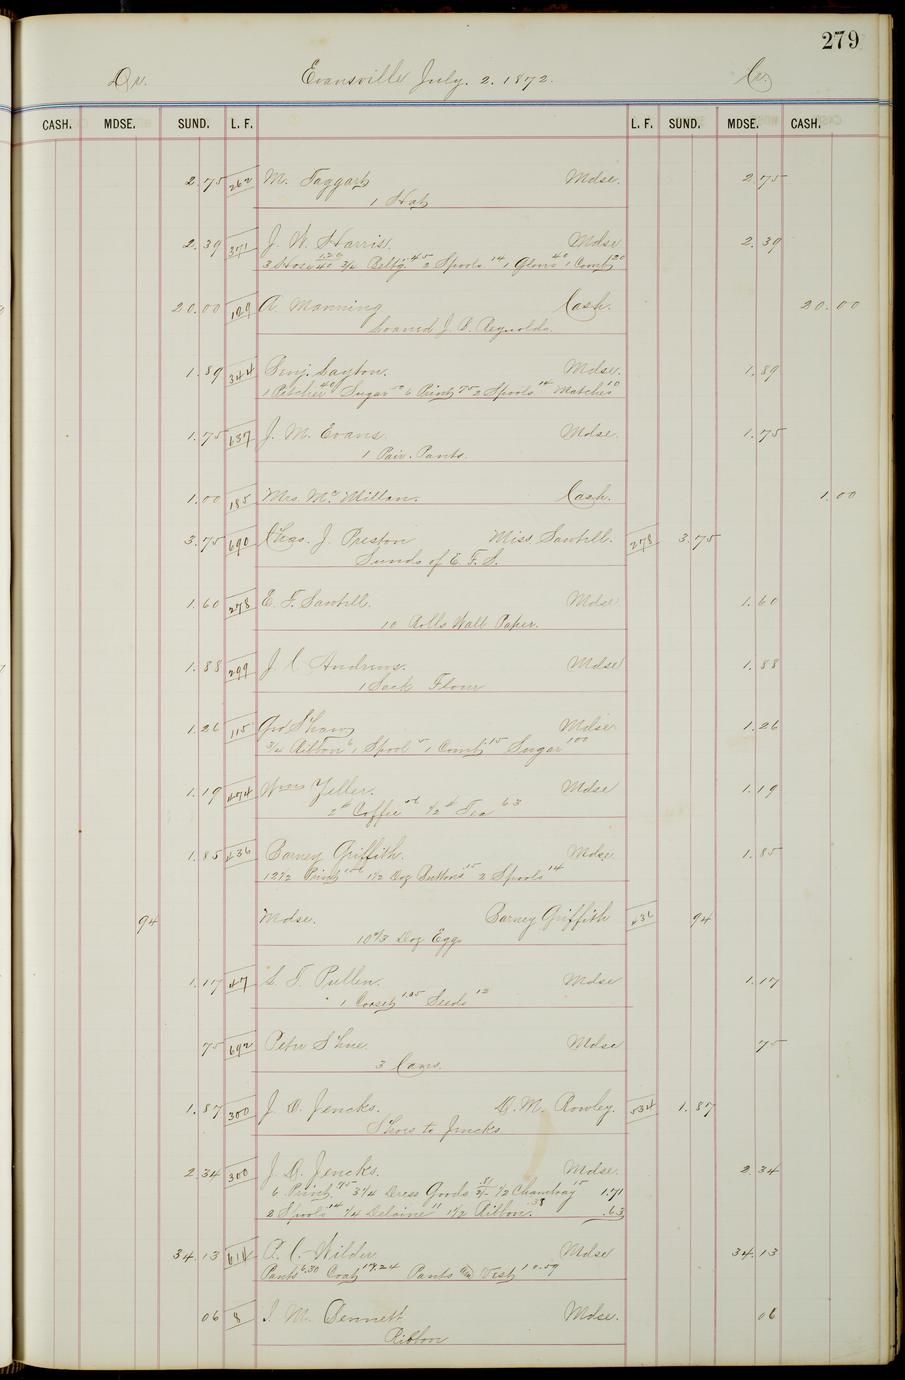 279
Dr. Evansville July. 2. 1872. Cr.
CASH. MDSE. SUND. L. F. L. F. SUND. MDSE. CASH.
2.75 262 M. Taggart Mdse. 2.75
1 Hat
2.39 371 J. W. Harris. Mdse 2.39
3 Hose 1.20 40 3/4 Beltg. 45 2 Spools 14 1 Glove 40 1 Comb 20
20.00 109 A. Manning Cash. 20.00
Loaned J. D. Reynolds.
1.89 344 Benj. Layton. Mdse. 1.89
1 Pitcher 40 Sugar 50 6 Print 75 2 Spools 14 Matches 10
1.75 637 J. M. Evans. Mdse. 1.75
1 Pair. Pants.
1.00 185 Mrs. Mc Millan. Cash. 1.00
3.75 690 Chas. J. Preston Miss Sawtell. 278 3.75
Sunds of E. F. S.
1.60 278 E. F. Sawtell. Mdse 1.60
10 Rolls Wall Paper.
1.88 299 J. C Andrews. Mdse 1.88
1 Sack Flour
1.26 115 Geo Shaw Mdse 1.26
3/4 Ribbon 6 1 Spool 5 1 Comb 15 Sugar 100
1.19 474 Wm Zeller. Mdse 1.19
2 # Coffee 1/2 # Tea 63
1.85 436 Barney Griffith. Mdse. 1.85
12 1/2 Print 1 1/2 Doz Buttons 15 2 Spools 14
94 Mdse. Barney Griffith 436 94
10 Doz Eggs
1.17 47 S. T. Pullen. Mdse 1.17
1 Corset 1.05 Seeds 12
75 692 Peter Shue. Mdse 75
3 Cans.
1.87 300 J. D. Jencks. D. M. Rowley. 534 1.87
Shoes to Jencks
2.34 300 J. D. Jencks. Mdse. 2.34
6 Print. 75 3 1/4 Dress Goods .81 1/2 Chambray 15 1.71
2 Spools 14 1/4 Delaine 11 1 1/2 Ribbon. 38 .63
34.13 614 P. C. Wilder Mdse 34.13
Pants 6.30 Coat 17.24 Pants & Vest 10.59
06 8 I. M. Bennett Mdse. 06
Ribbon